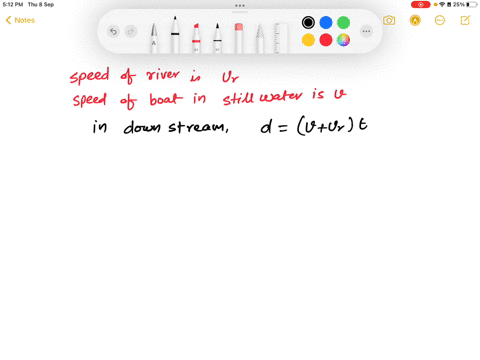 5:12 PM Thu 8 Sep
25%
Notes
speed of river is vr
speed of boat in still water is v
in down stream, d = (v+vr) t